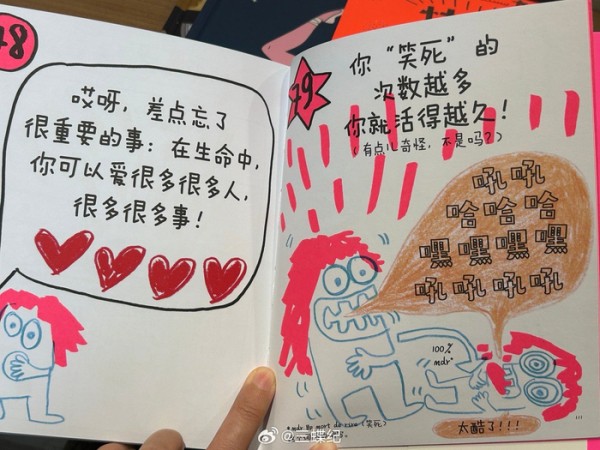 78
哎呀，差点忘了
很重要的事：在生命中，
你可以爱很多很多人，
很多很多事！
79
你“笑死”的
次数越多
你就活得越久！
（有点儿奇怪，不是吗？）
吼吼
哈哈哈
嘿嘿嘿嘿
吼吼吼吼
100%
mdr*
太酷了！！！
111
@三蝶纪